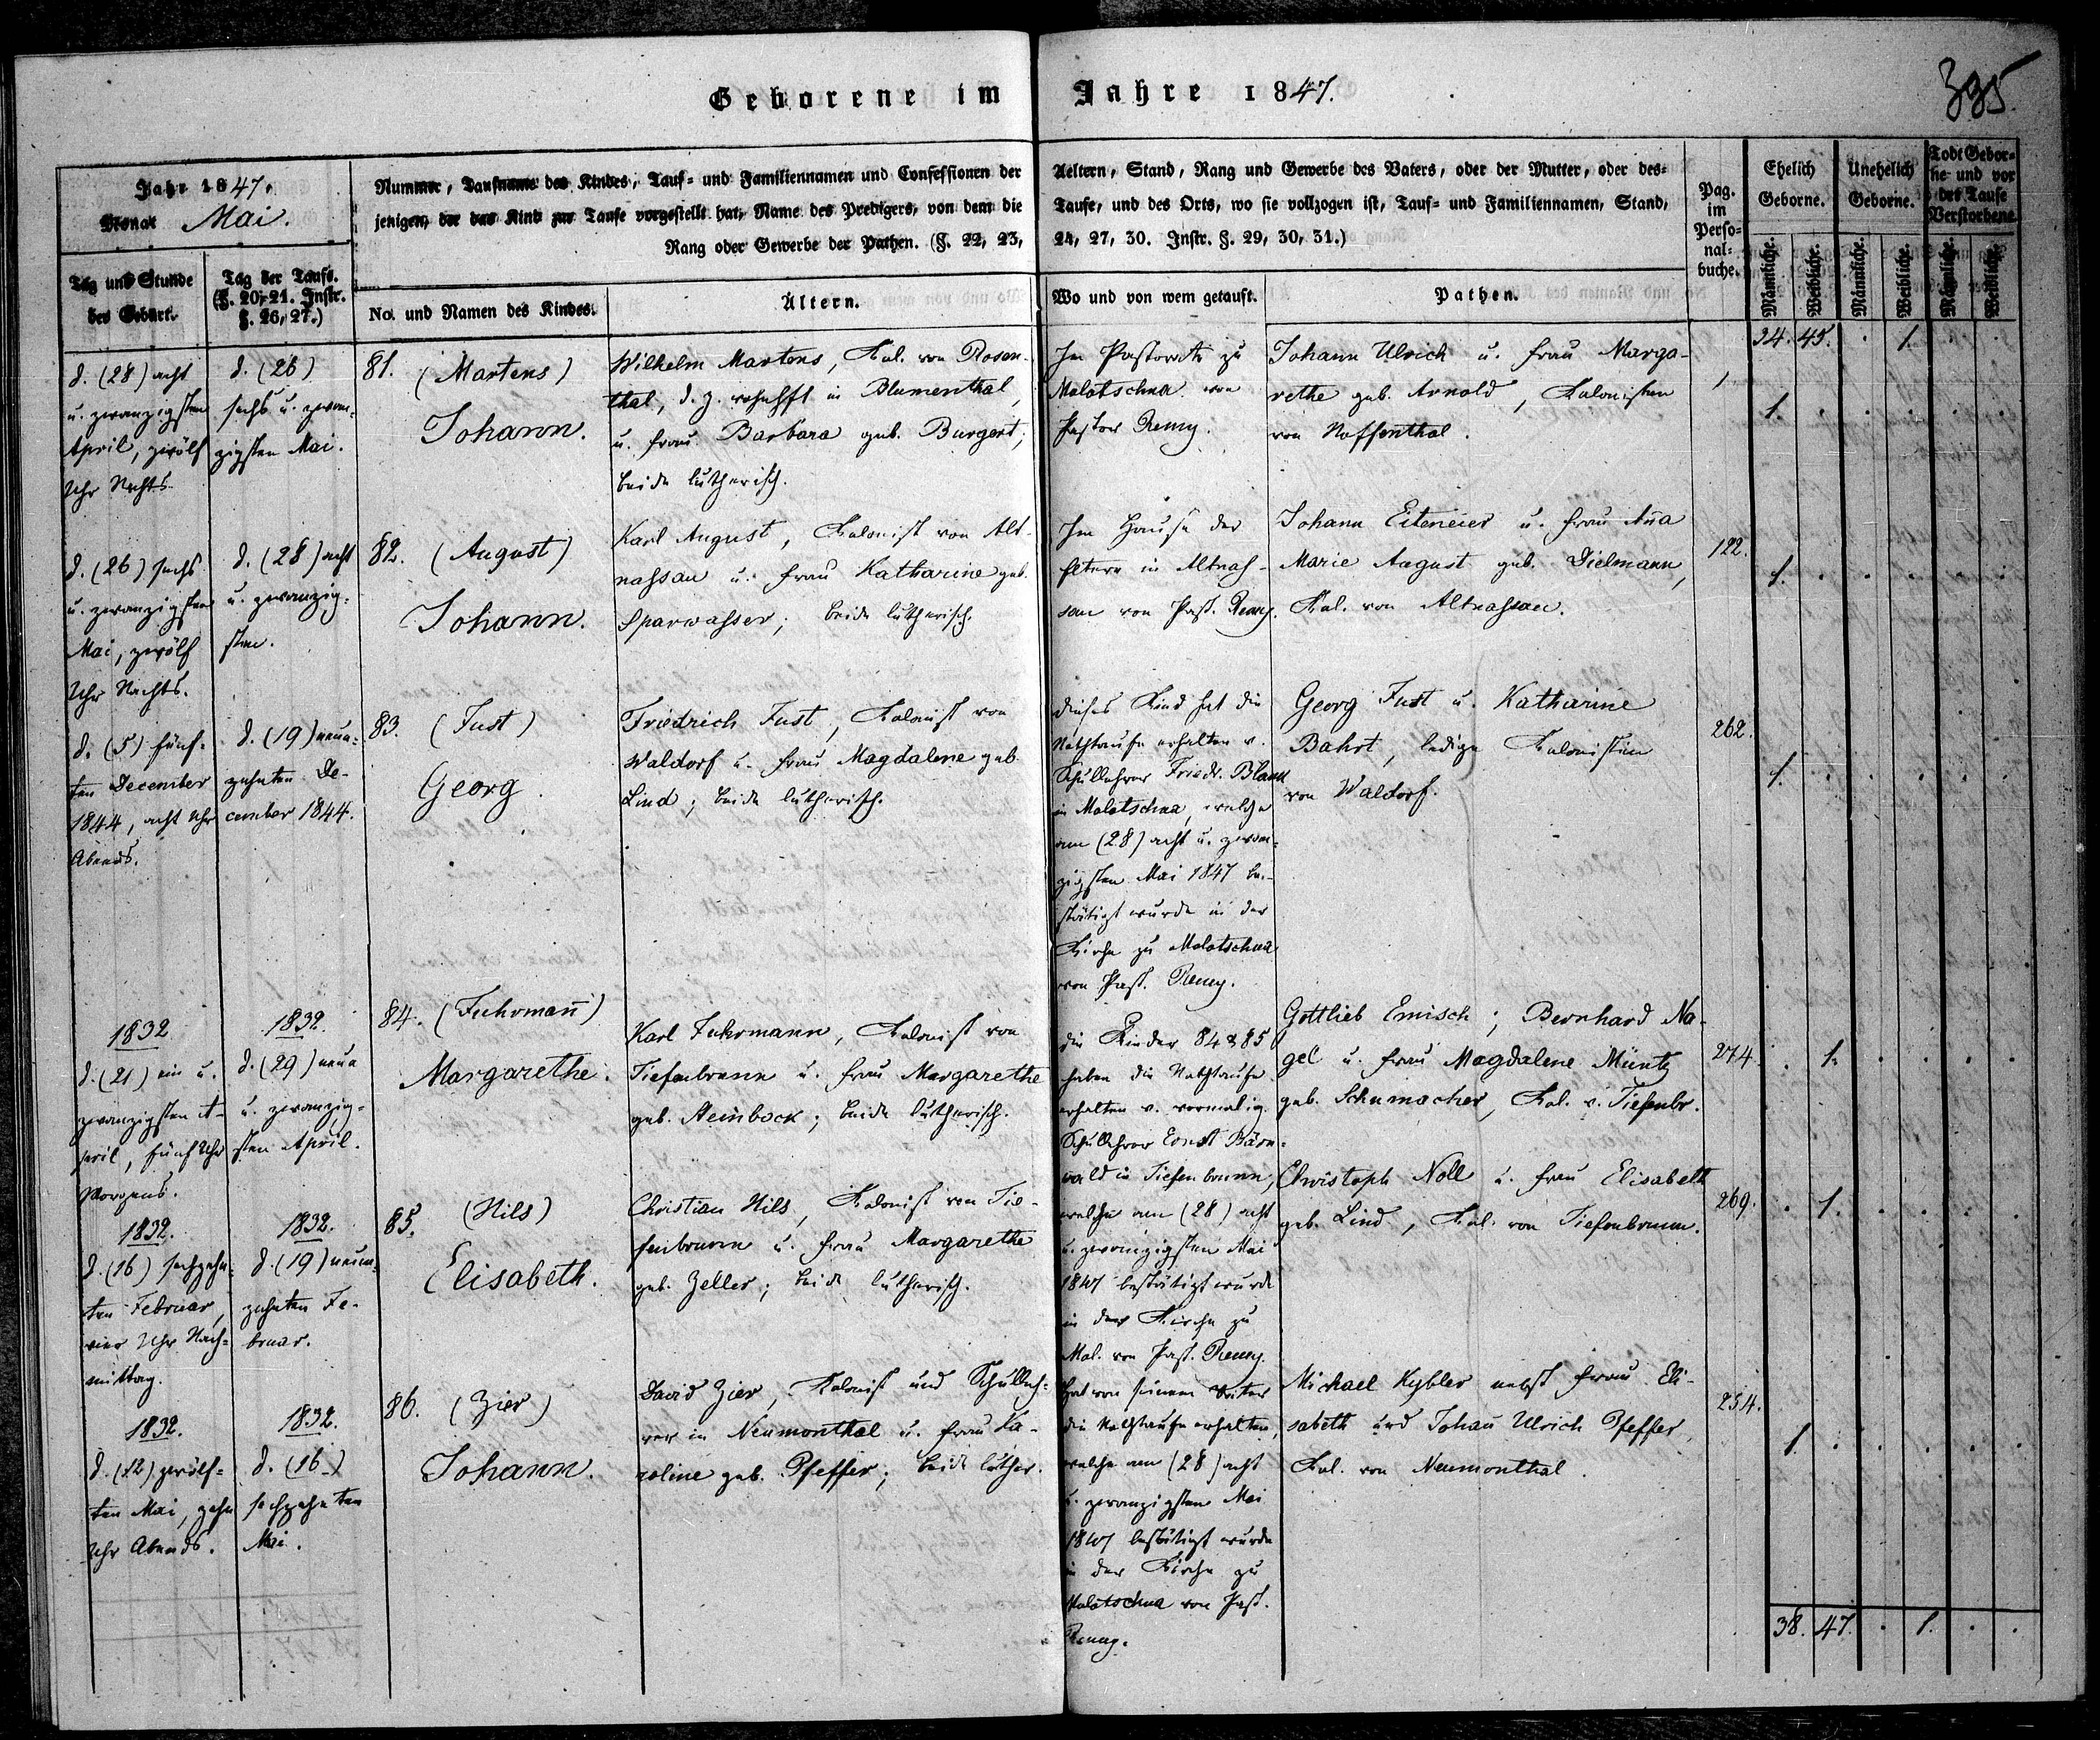 Geborene im Jahre 1847.
335
Jahr 1847.
Monat Mai.
Nummer, Taufname des Kindes, Tauf- und Familiennamen und Confessionen der Aeltern, Stand, Rang und Gewerbe des Vaters, oder der Mutter, oder des-
jenigen, der das Kind zur Taufe vorgestellt hat, Name des Predigers, von dem die Taufe, und des Orts, wo sie vollzogen ist, Tauf- und Familiennamen, Stand,
Rang oder Gewerbe der Pathen. (§. 22, 23, 24, 27, 30. Instr. §. 29, 30, 31.)
Pag.
im
Perso-
nal-
buche.
Ehelich
Geborne.
Unehelich
Geborne.
Todt Gebor-
ne und vor
der Taufe
Verstorbene
Männliche.
Weibliche.
Männliche.
Weibliche.
Männliche.
Weibliche.
Tag und Stunde
der Geburt.
Tag der Taufe.
(§. 20, 21. Instr.
§. 26, 27.)
No. und Namen des Kindes.
Ältern.
Wo und von wem getauft.
Pathen.
34. 45. . 1. . .
d. (28) acht
u. zwanzigsten
April, zwölf
Uhr Nachts.
d. (26)
sechs u. zwan-
zigsten Mai.
81. (Martens)
Johann.
Wilhelm Martens, Kol. von Rosen-
thal, d. z. wohnhft in Blumenthal,
u. Frau Barbara geb. Burgert;
beide lutherisch.
Im Pastorate zu
Molotschna von
Pastor Remy.
Johann Ulrich u. Frau Marga-
rethe geb. Arnold, Kolonisten
von Hoffenthal.
1. . . . . .
d. (26) sechs
u. zwanzigsten
Mai, zwölf
Uhr Nachts.
d. (28) acht
u. zwanzig-
sten.
82. (August)
Johann.
Karl August, Kolonist von Alt-
nassau u. Frau Katharine geb.
Sparwasser; beide lutherisch.
Im Hause der
Eltern in Altnas-
sau von Past. Remy.
Johann Eiteneier u. Frau Anna
Marie August geb. Dielmann,
Kol. von Altnassau.
122.
1. . . . . .
d. (5) fünf-
ten December
1844, acht Uhr
Abends.
d. (19) neun-
zehnten De-
cember 1844.
83. (Fust)
Georg.
Friedrich Fust, Kolonist von
Waldorf u. Frau Magdalene geb.
Lind; beide lutherisch.
Dieses Kind hat die
Nothtaufe erhalten v.
Schullehrer Friedr. Blank
in Molotschna, welche
am (28) acht u. zwan-
zigsten Mai 1847 be-
stätigt wurde in der
Kirche zu Molotschna
von Past. Remy.
Georg Fust u. Katharine
Bahrt, ledige Kolonisten
von Waldorf.
262.
1. . . . . .
1832
d. (21) ein u.
zwanzigsten A-
pril, fünf Uhr
Morgens.
1832.
d. (29) neun
u. zwanzig-
sten April.
84. (Fuhrmann)
Margarethe.
Karl Fuhrmann, Kolonist von
Tiefenbrunn u. Frau Margarethe
geb. Steinbock; beide lutherisch.
Die Kinder 84 & 85
haben die Nothtaufe
erhalten v. vormalig.
Schullehrer Ernst Bärn-
wald in Tiefenbrunn,
welche am (28) acht
u. zwanzigsten Mai
1847 bestätigt wurde
in der Kirche zu
Mol. von Past. Remy.
Gottlieb Emisch; Bernhard Na-
gel u. Frau Magdalene Müntz
geb. Schumacher, Kol. v. Tiefenbr.
274.
. 1. . . . .
1832.
d. (16) sechzehn-
ten Februar,
vier Uhr Nach-
mittag.
1832.
d. (19) neun-
zehnten Fe-
bruar.
85. (Hils)
Elisabeth.
Christian Hils, Kolonist von Tie-
fenbrunn u. Frau Margarethe
geb. Zeller; beide lutherisch.
Christoph Noll u. Frau Elisabeth
geb. Lind, Kol. von Tiefenbrunn.
269.
. 1. . . . .
1832.
d. (12) zwölf-
ten Mai, zehn
Uhr Abends.
1832.
d. (16)
sechzehnten
Mai.
86. (Zier)
Johann.
David Zier, Kolonist und Schulleh-
rer in Neumonthal u. Frau Ka-
roline geb. Pfeffer; beide luther.
Hat von seinem Vater
die Nothtaufe erhalten,
welche am (28) acht
u. zwanzigsten Mai
1847 bestätigt wurde
in der Kirche zu
Molotschna von Past.
Remy.
Michael Kybler nebst Frau Eli-
sabeth und Johann Ulrich Pfeffer,
Kol. von Neumonthal.
254.
1. . . . . .
38. 47. . 1. . .